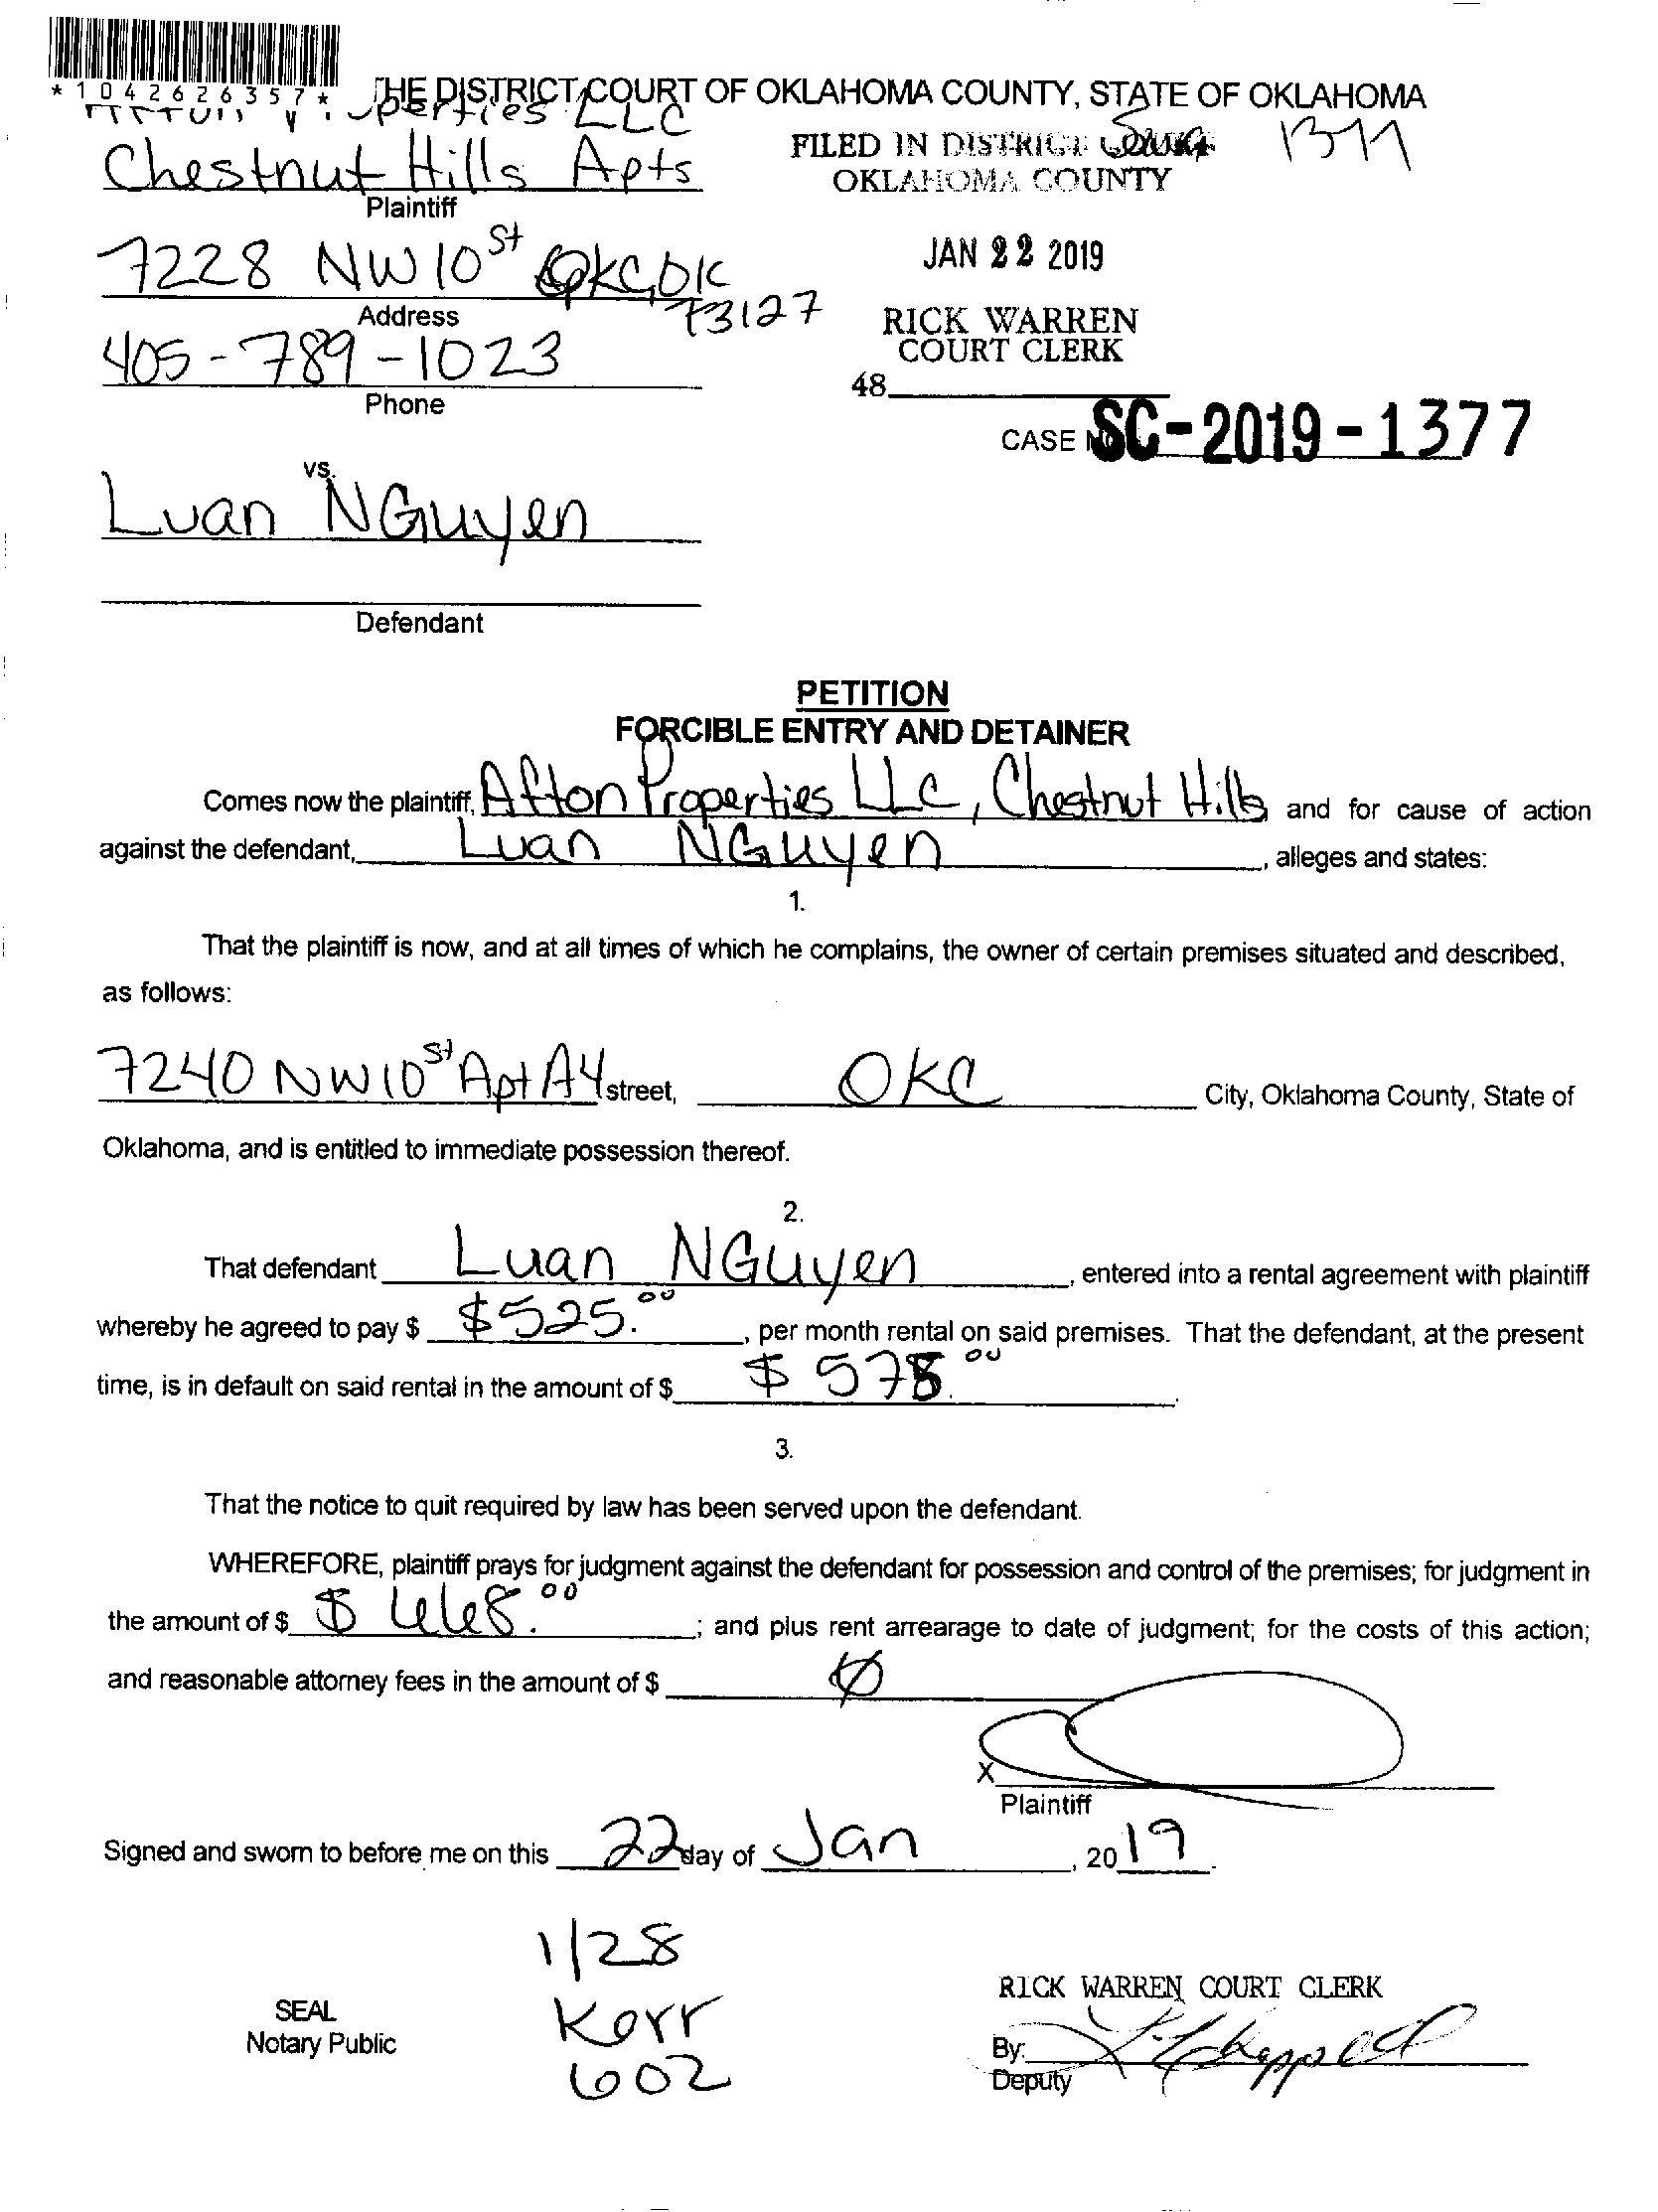 *1042626357*
THE DISTRICT COURT OF OKLAHOMA COUNTY, STATE OF OKLAHOMA
Properties LLC
Chestnut Hills Apts
Plaintiff
FILED IN DISTRICT COURT
OKLAHOMA COUNTY
1377
7228 NW 10st OKC, OK
73127
Address
JAN 22 2019
405-789-1023
Phone
RICK WARREN
COURT CLERK
48
CASE NO SC-2019-1377
vs.
Luan NGuyen
Defendant
PETITION
FORCIBLE ENTRY AND DETAINER
Comes now the plaintiff, Afton Properties LLC, Chestnut Hills and for cause of action
against the defendant, Luan NGuyen, alleges and states:
1.
That the plaintiff is now, and at all times of which he complains, the owner of certain premises situated and described,
as follows:
7240 NW 10st Apt A4 street, OKC City, Oklahoma County, State of
Oklahoma, and is entitled to immediate possession thereof.
2.
That defendant Luan NGuyen, entered into a rental agreement with plaintiff
whereby he agreed to pay $ $525.00, per month rental on said premises. That the defendant, at the present
time, is in default on said rental in the amount of $ $578.00.
3.
That the notice to quit required by law has been served upon the defendant.
WHEREFORE, plaintiff prays for judgment against the defendant for possession and control of the premises; for judgment in
the amount of $ $668.00; and plus rent arrearage to date of judgment; for the costs of this action;
and reasonable attorney fees in the amount of $
X
Plaintiff
Signed and sworn to before me on this 22 day of Jan, 2019.
1/28
Kerr
602
SEAL
Notary Public
RICK WARREN COURT CLERK
By:
Deputy